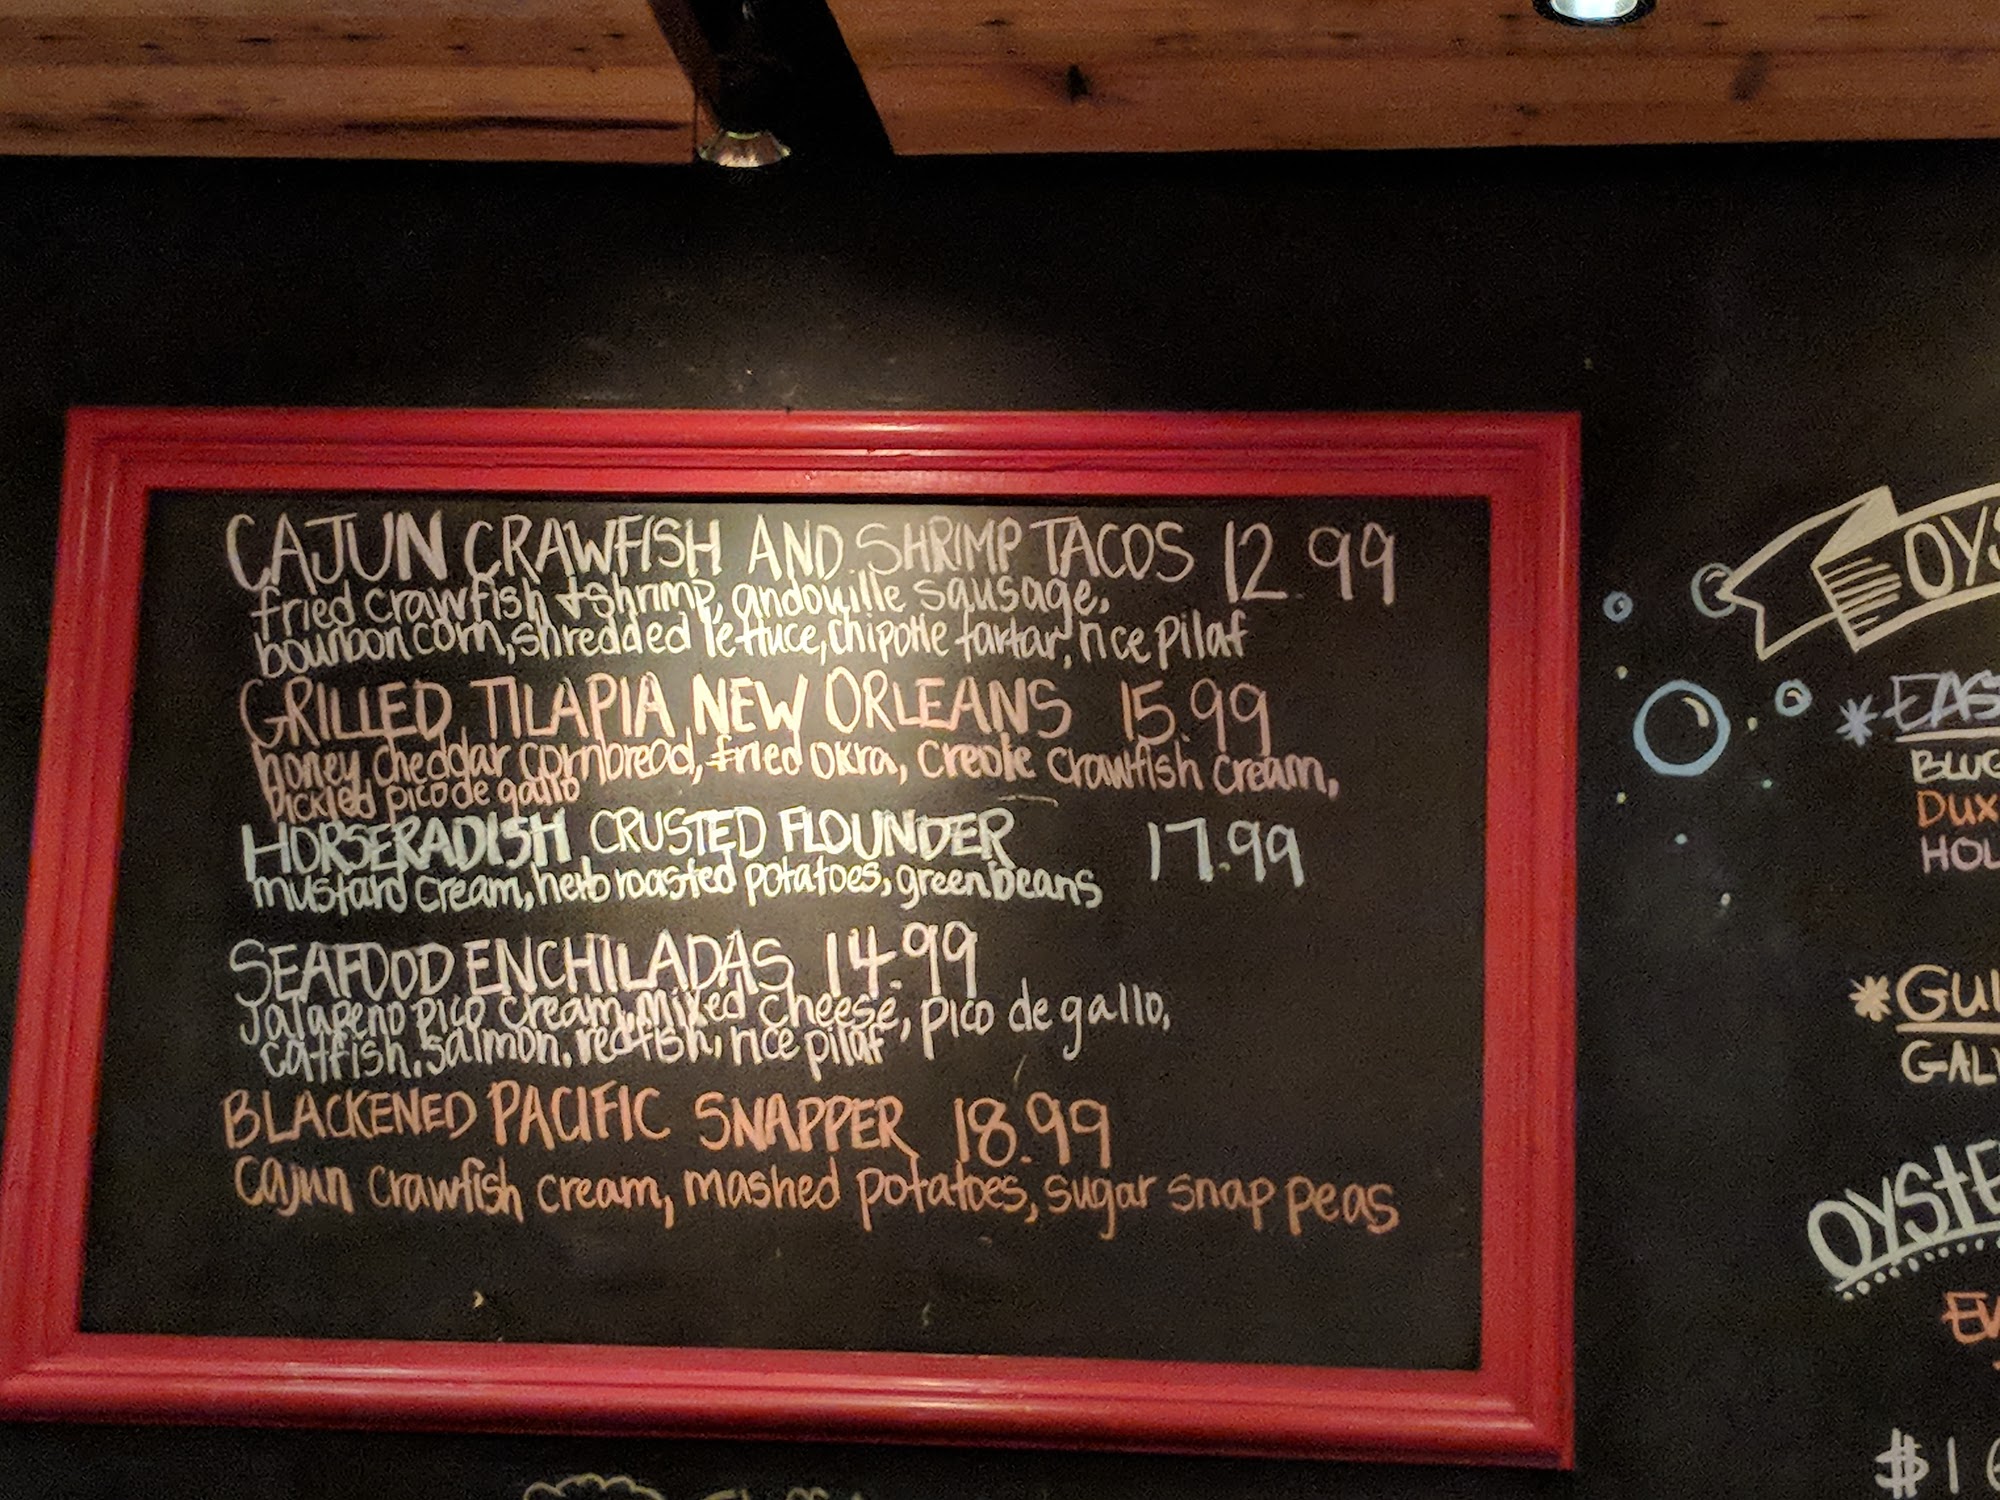 CAJUN CRAWFISH AND SHRIMP TACOS 12.99
fried crawfish + shrimp, andouille sausage,
bourbon corn, shredded lettuce, chipotle tartar, rice pilaf
GRILLED TILAPIA NEW ORLEANS 15.99
honey cheddar cornbread, fried okra, creole crawfish cream,
pickled pico de gallo
HORSERADISH CRUSTED FLOUNDER 17.99
mustard cream, herb roasted potatoes, green beans
SEAFOOD ENCHILADAS 14.99
Jalapeno pico cream, mixed cheese, pico de gallo,
catfish, salmon, redfish, rice pilaf
BLACKENED PACIFIC SNAPPER 18.99
Cajun crawfish cream, mashed potatoes, sugar snap peas
OYS
*EAS
BLUG
DUX
HOL
*GUL
GAL
OYSTE
EV
$1